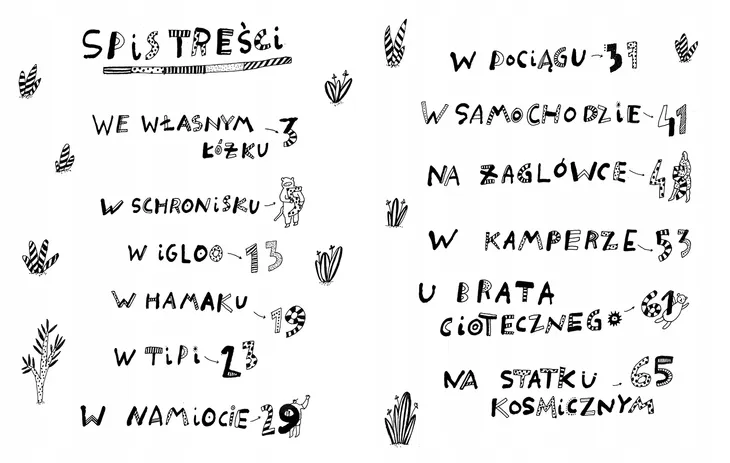 SPIS TREŚCI
WE WŁASNYM
ŁÓŻKU 3
W SCHRONISKU
W IGLOO 13
W HAMAKU
19
W TIPI 23
W NAMIOCIE 29
W POCIĄGU 31
W SAMOCHODZIE 41
NA ŻAGLÓWCE
W KAMPERZE 53
U BRATA
CIOTECZNEGO 61
NA STATKU 65
KOSMICZNYM